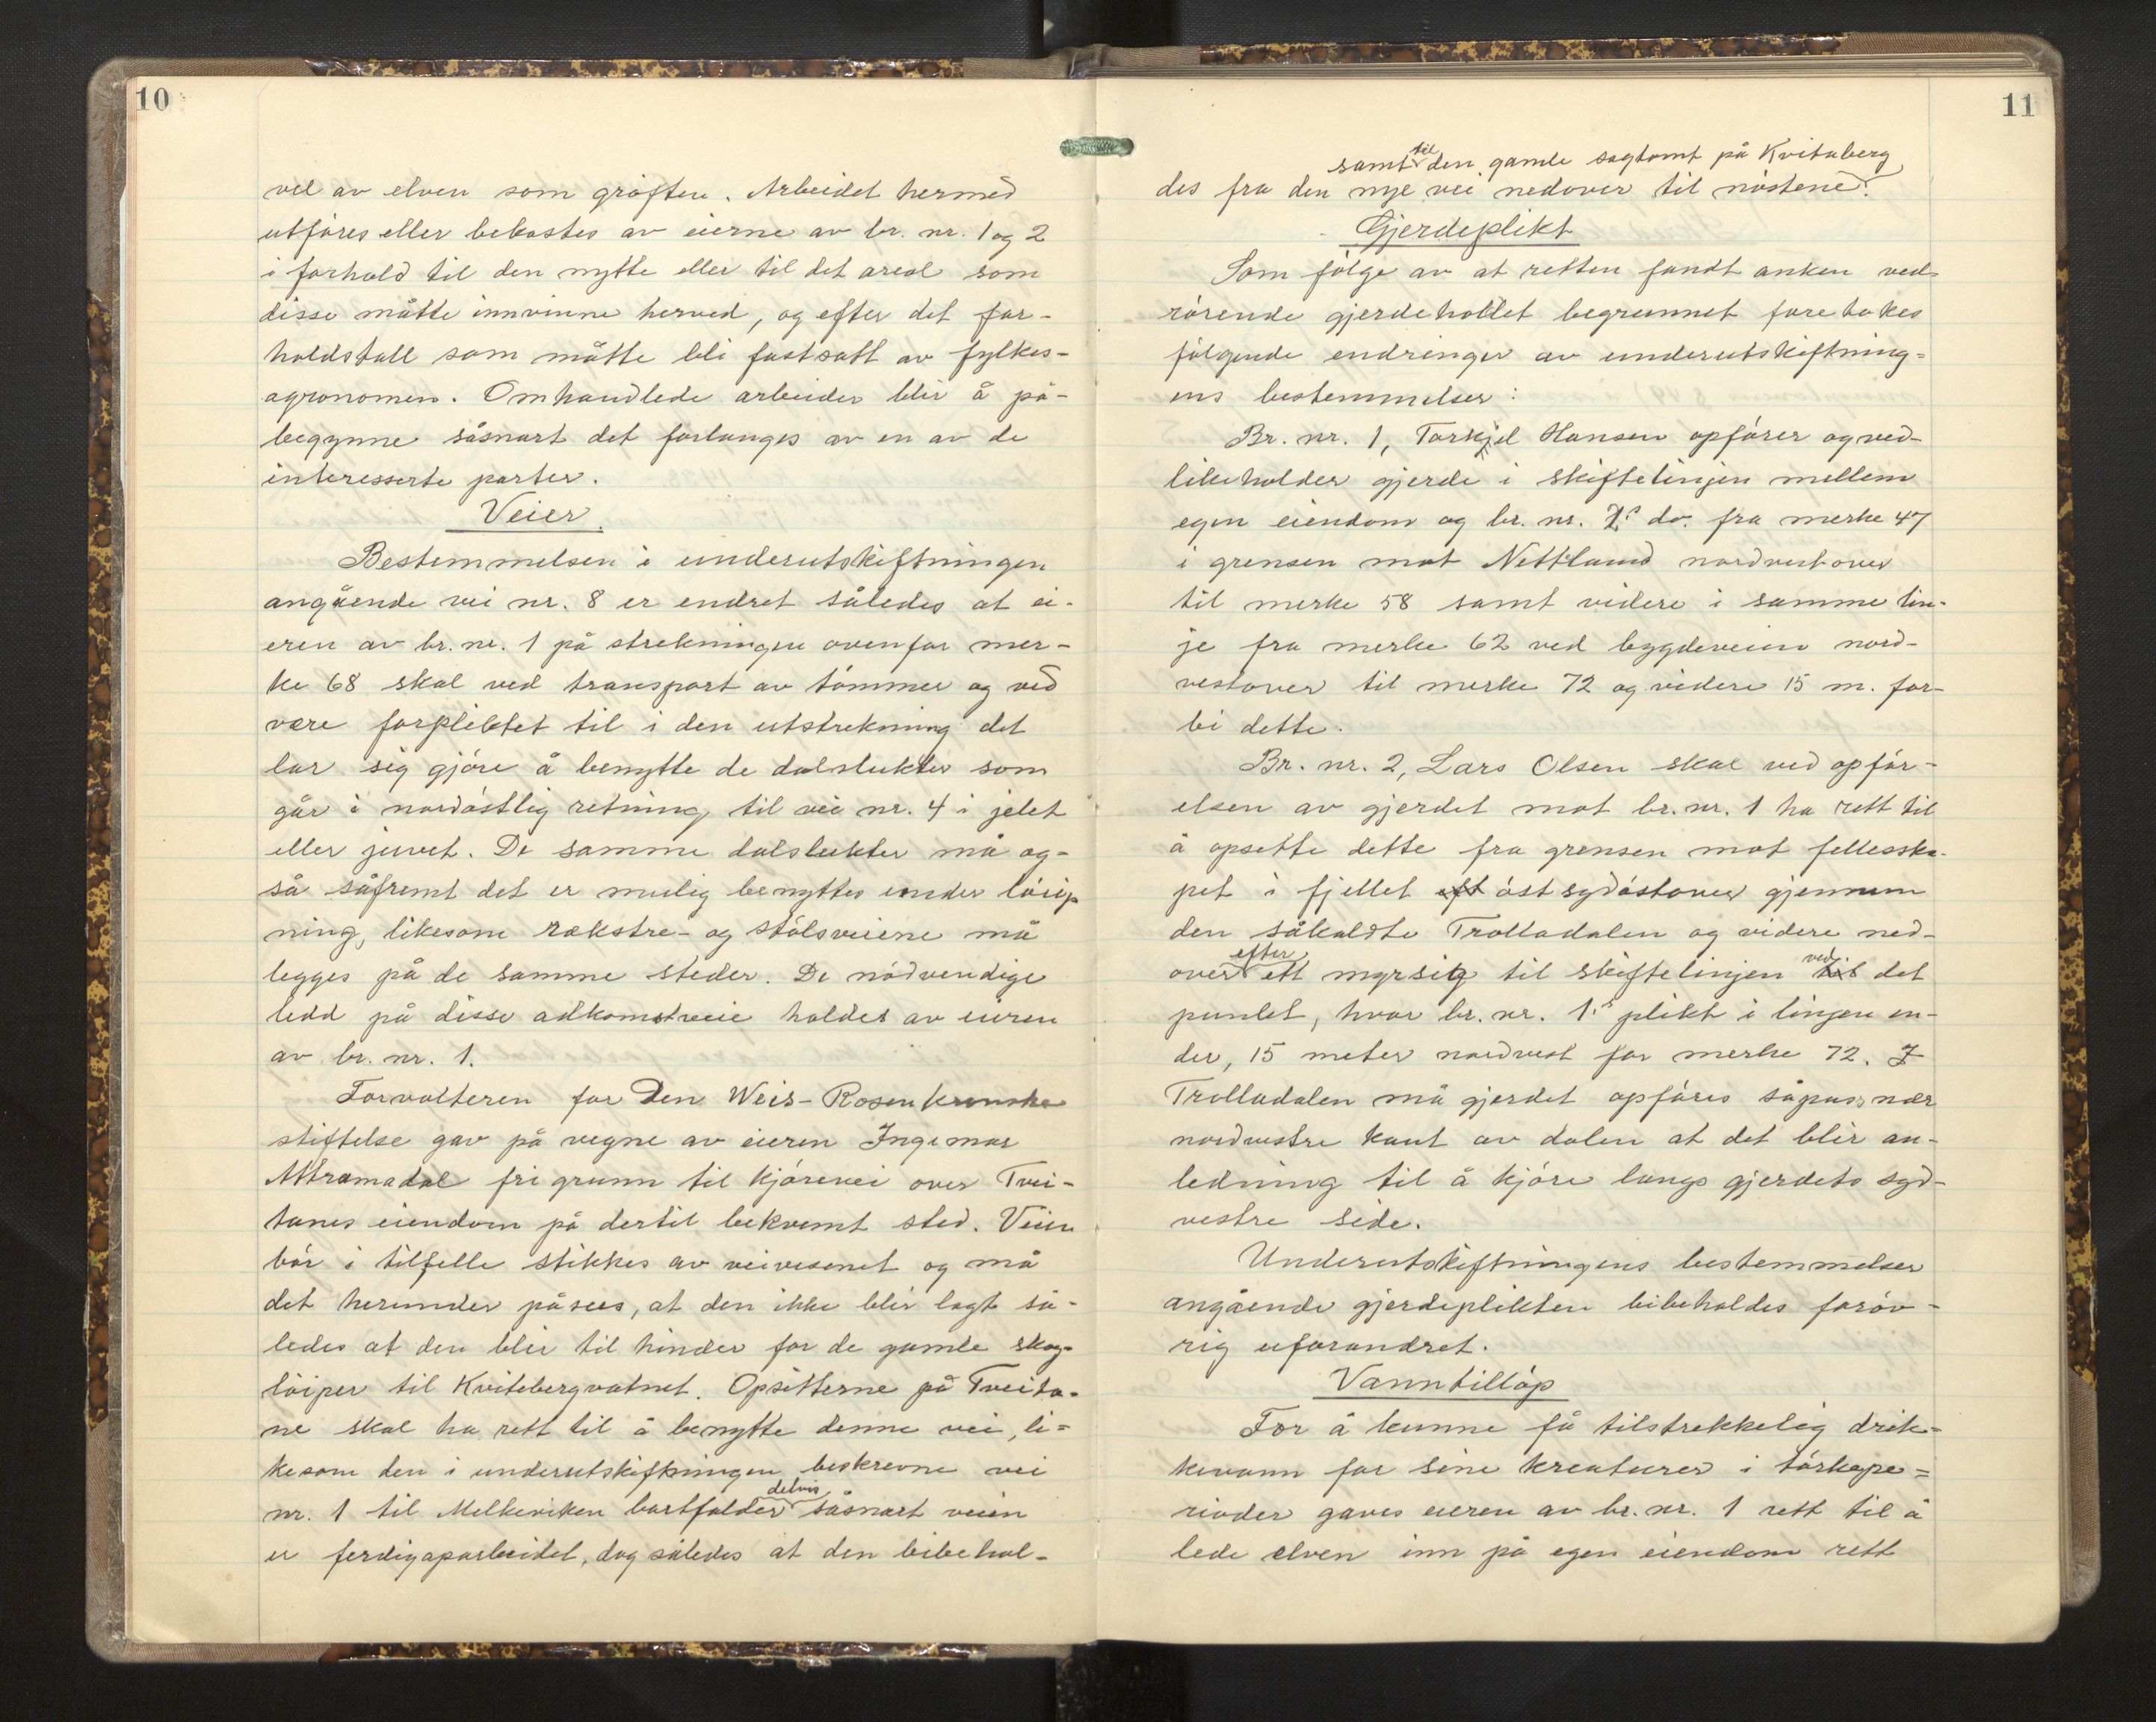 10
vel av elven som grøften. Arbeidet hermed
utføres eller bekostes av eierne av br. nr. 1 og 2
i forhold til den nytte eller til det areal som
disse måtte innvinne herved, og efter det for-
holdstall som måtte bli fastsatt av fylkes-
agronomen. Omhandlede arbeider blir å på-
begynne såsnart det forlanges av en av de
interesserte parter.
Veier.
Bestemmelsen i underutskiftningen
angående vei nr. 8 er endret således at ei-
eren av br. nr. 1 på strekningen ovenfor mer-
ke 68 skal ved transport av tømmer og ved
være forpliktet til i den utstrekning det
lar sig gjøre å benytte de dalslukter som
går i nordøstlig retning til vei nr. 4 i jelet
eller juvet. De samme dalslukter må og-
så såfremt det er mulig benyttes under løip-
ning, likesom rækstre- og stølsveiene må
legges på de samme steder. De nødvendige
ledd på disse adkomstveie holdes av eieren
av br. nr. 1.
Forvalteren for Den Weis-Rosenkronske
stiftelse gav på vegne av eieren Ingemar
Attramadal fri grunn til kjørevei over Tvei-
tanes eiendom på dertil bekvemt sted. Veien
bør i tilfelle stikkes av veivesenet og må
det herunder påsees, at den ikke blir lagt så-
ledes at den blir til hinder for de gamle skog-
løiper til Kvitebergvatnet. Opsitterne på Tveita-
ne skal ha rett til å benytte denne vei, li-
kesom den i underutskiftningen beskrevne vei
nr. 1 til Melkeviken bortfalder delvis såsnart veien
er ferdigoparbeidet, dog således at den bibehol-
11
samt til den gamle sagtomt på Kvitaberg
des fra den nye vei nedover til nøstene.
Gjerdeplikt
Som følge av at retten fandt anken ved-
rørende gjerdeholdet begrunnet foretakes
følgende endringer av underutskiftning-
ens bestemmelser:
Br. nr. 1, Torkjel Hansen opfører og ved-
likeholder gjerde i skiftelinjen mellem
egen eiendom og br. nr. 2's do. fra merke 47
i grensen mot Nettland nordvestover
til merke 58 samt videre i samme lin-
je fra merke 62 ved bygdeveien nord-
vestover til merke 72 og videre 15 m. for-
bi dette.
Br. nr. 2, Lars Olsen skal ved opfør-
elsen av gjerdet mot br. nr. 1 ha rett til
å opsette dette fra grensen mot fellesska-
pet i fjellet øst sydøstover gjennem
den såkaldte Trolladalen og videre ned-
over efter ett myrsig til skiftelinjen ved det
punkt, hvor br. nr. 1's plikt i linjen en-
der, 15 meter nordvest for merke 72. I
Trolladalen må gjerdet opføres såpass nær
nordvestre kant av dalen at det blir an-
ledning til å kjøre langs gjerdets syd-
vestre side.
Underutskiftningens bestemmelser
angående gjerdeplikten bibeholdes forøv-
rig uforandret.
Vanntilløp
For å kunne få tilstrekkelig drik-
kevann for sine kreaturer i tørkepe-
rioder gaves eieren av br. nr. 1 rett til å
lede elven inn på egen eiendom rett